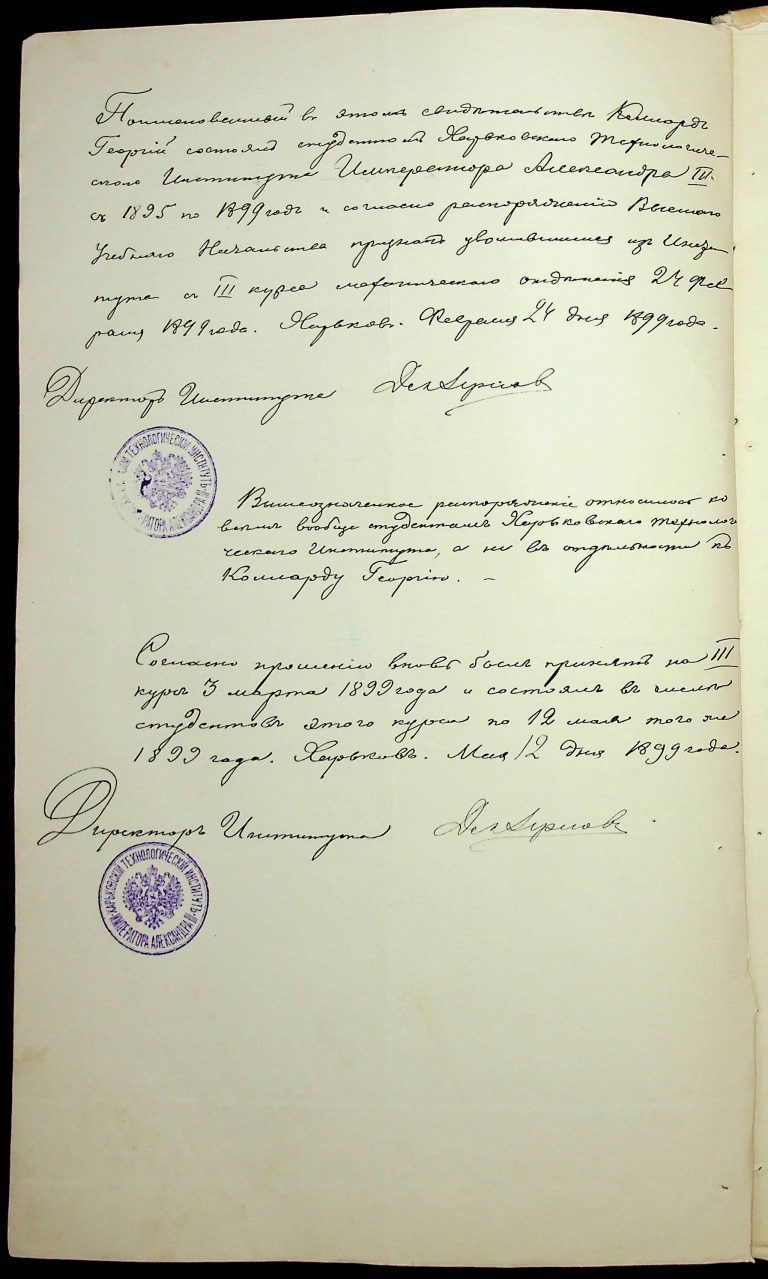 Поименованный въ этомъ свидѣтельствѣ Коллардъ
Георгій состоялъ студентомъ Харьковскаго Технологиче-
скаго Института Императора Александра III.
съ 1895 по 1899 годъ и согласно распоряженію Высшаго
Учебнаго Начальства признанъ уволившимся изъ Инсти-
тута съ III курса механическаго отдѣленія 24 Фев
раля 1899 года. Харьковъ. Февраля 24 дня 1899 года.
Директоръ Института
ТЕХНОЛОГИЧЕСКІЙ ИНСТИТУТЪ
ИМПЕРАТОРА АЛЕКСАНДРА III
Вышеозначенное распоряженіе относилось ко
всѣмъ вообще студентамъ Харьковскаго Технологи
ческаго Института, а не въ отдѣльности къ
Колларду Георгію. —
Согласно прошенію вновь былъ принятъ на III
курсъ 3 марта 1899 года и состоялъ въ числѣ
студентовъ этого курса по 12 мая того же
1899 года. Харьковъ. Мая 12 дня 1899 года.
Директоръ Института
ХАРЬКОВСКІЙ ТЕХНОЛОГИЧЕСКІЙ ИНСТИТУТЪ
ИМПЕРАТОРА АЛЕКСАНДРА III